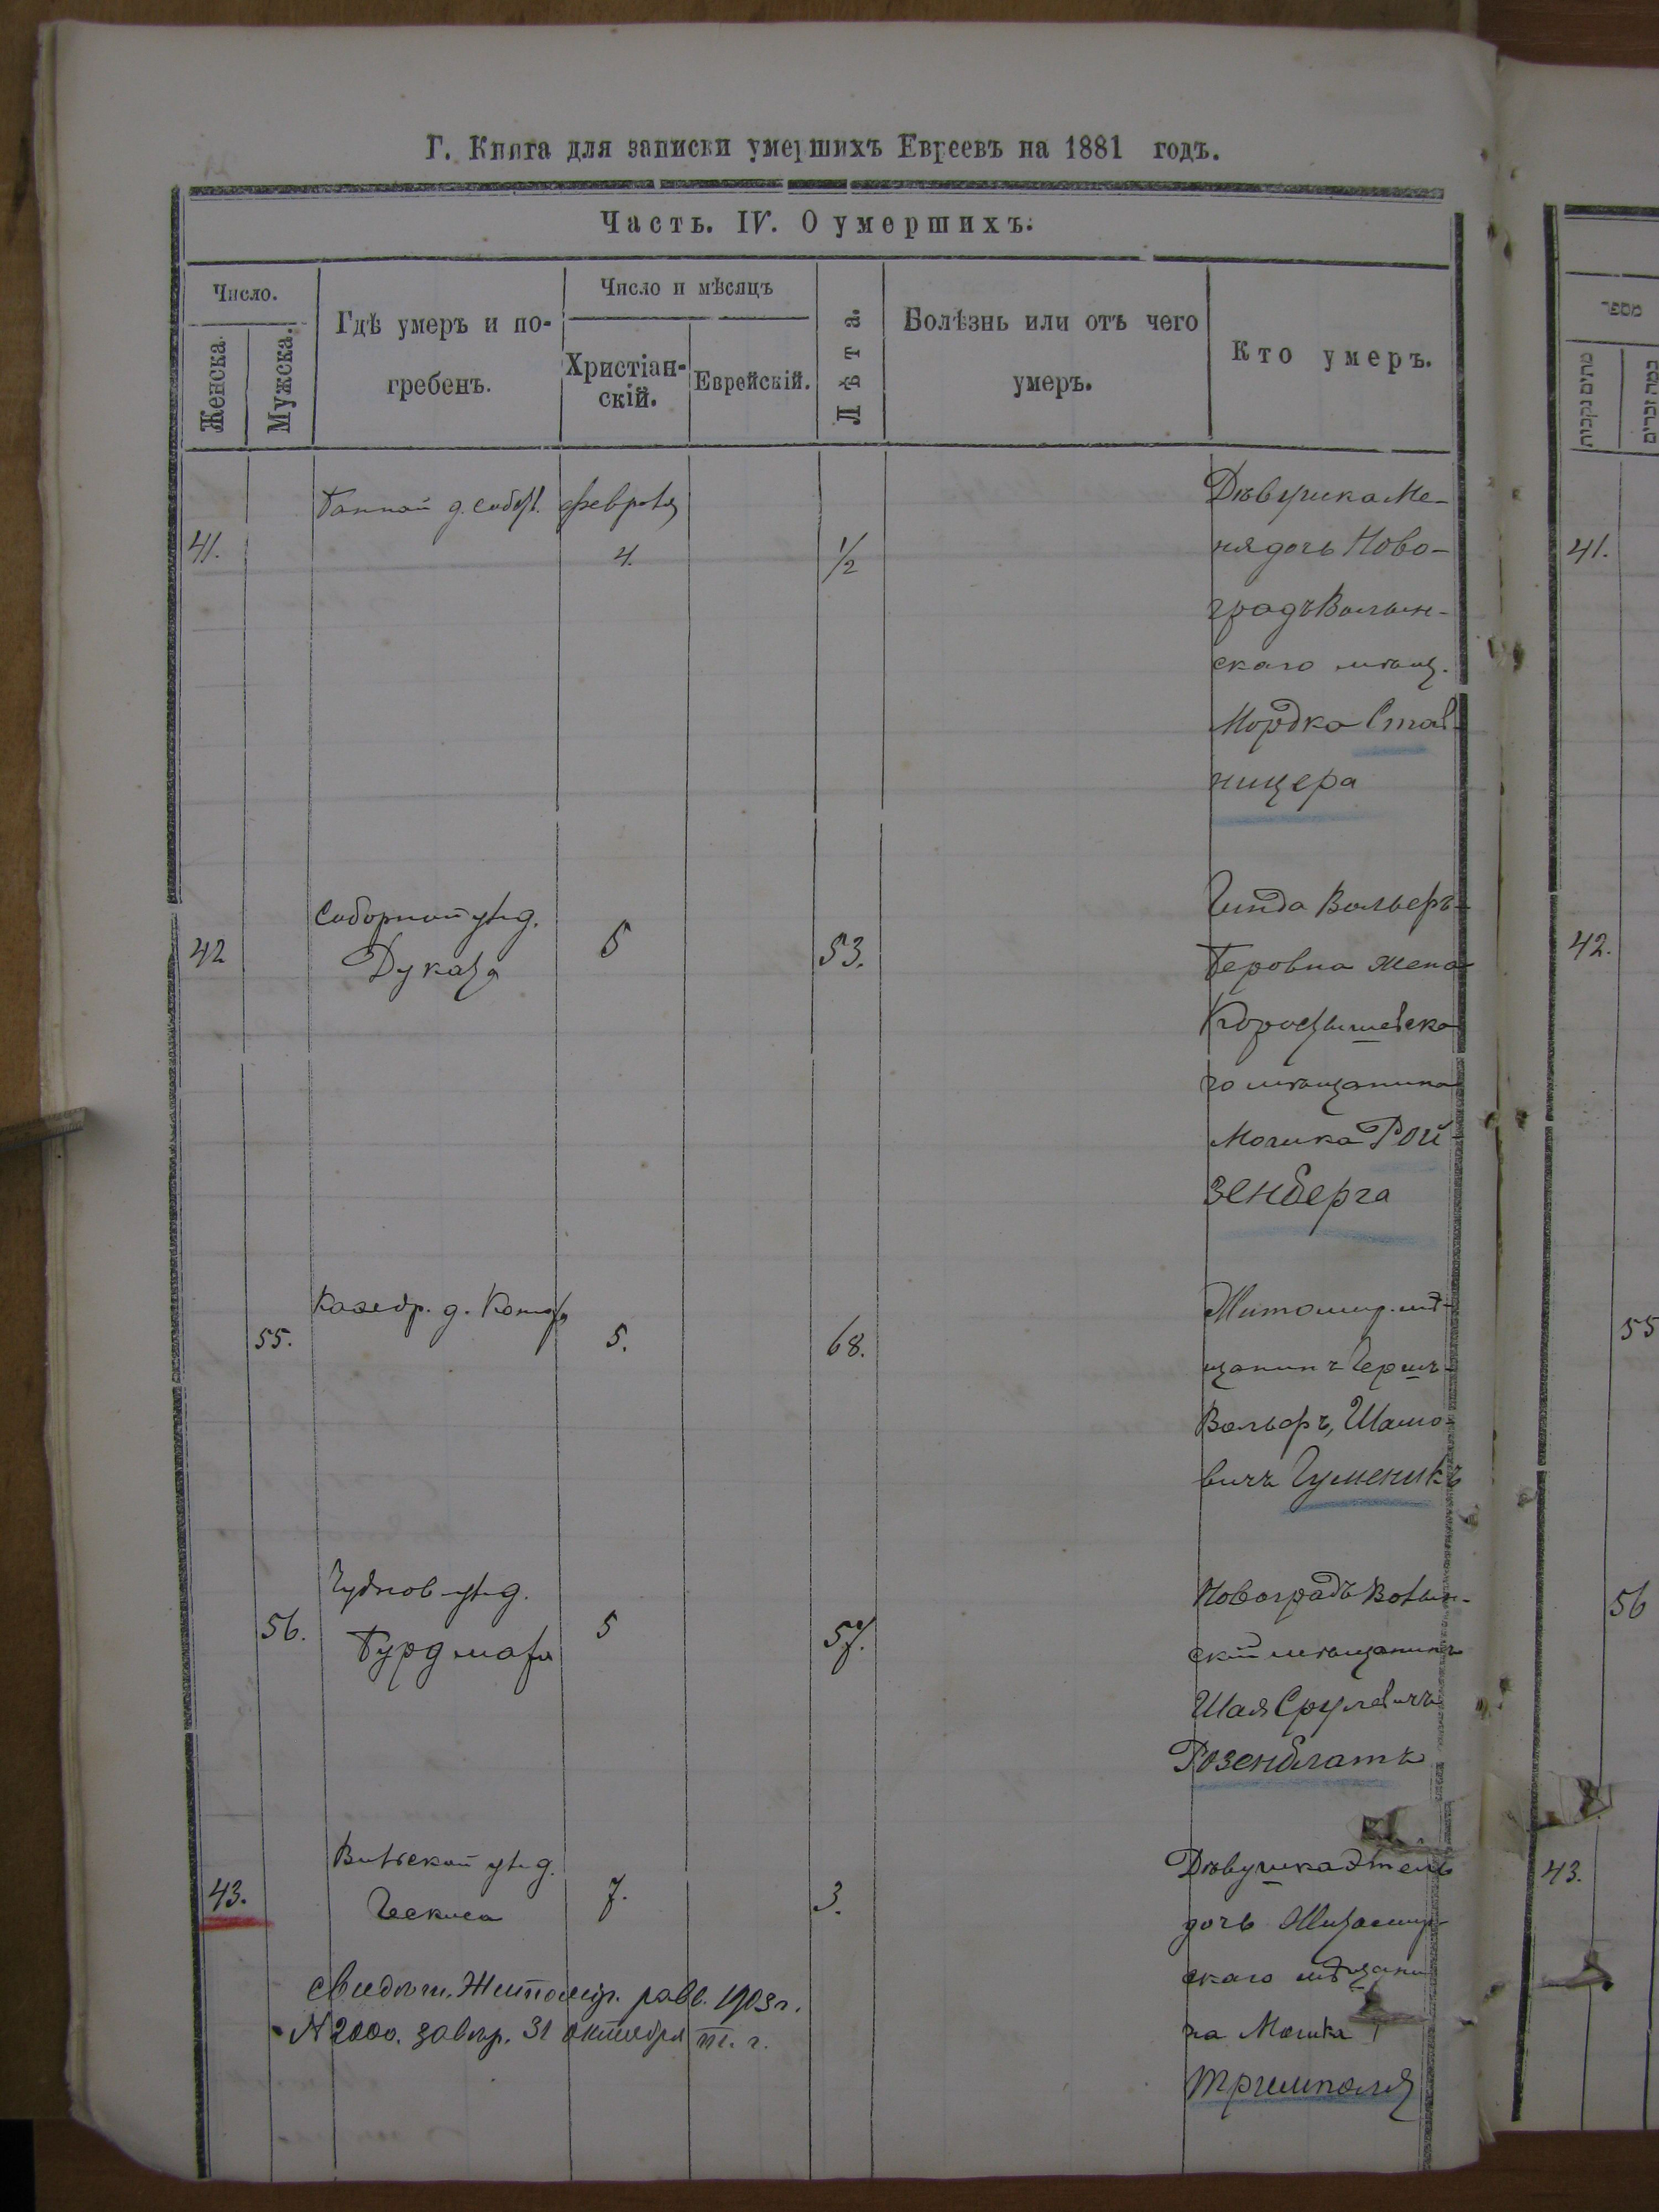 Г. Книга для записки умершихъ Евреевъ на 1881 годъ.
Часть. IV. О умершихъ.
Число.
Женска.
Мужска.
Гдѣ умеръ и по-
гребенъ.
Число и мѣсяцъ
Христіан-
скій.
Еврейскій.
Лѣта.
Болѣзнь или отъ чего
умеръ.
Кто умеръ.
41.
февраля
4.
1/2
Дѣвушка Ме-
ня дочь Ново-
градъ Волын-
скаго мѣщ.
Мордка Став-
ницера
42
Соборной ул. д.
Дуката
5
53.
Гинда Вольфъ-
Беровна жена
Коростышевска
го мѣщанина
Мошка Рой-
зенберга
55.
Кафедр. д.
5.
68.
Житомир. мѣ-
щанинъ Гершъ-
Вольфъ, Шамо-
вичъ Гуменикъ
56.
Чуднов ул. д.
Гурдмана
5
57.
Новоградъ Волын-
скій мѣщанинъ
Шая Срулевичъ
Розенблатъ
43.
Вильской ул. д.
7.
3.
Дѣвушка Этель
дочь Житомир-
скаго мѣщани
на Мошка
свидѣт. Житомір. равв. 1903 г.
№ 2000. завѣр. 31 октября т. г.
מספר
41.
42.
55
56
43.